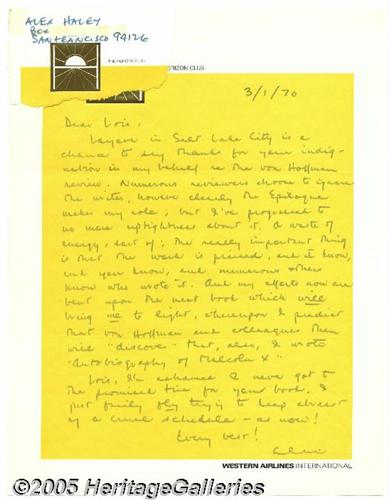 ALEX HALEY
BOX
SAN FRANCISCO 94126
THE HORIZON CLUB
HORIZON CLUB
3/1/70
Dear Lois,
Layover in Salt Lake City is a
chance to say thanks for your indig-
nation in my behalf re the von Hoffman
review. Numerous reviewers choose to ignore
the writer, however clearly the Epilogue
makes my role; but I've progressed to
no more uptightness about it. A waste of
energy, sort of; the really important thing
is that the work is praised, and I know,
and you know, and numerous others
know who wrote it. And my efforts now are
bent upon the next book which will
bring me to light, whereupon I predict
that von Hoffman and colleagues then
will "discover" that, also, I wrote
"Autobiography of Malcolm X".
Lois, I'm ashamed I never got to
the promised time for your book. I
just fairly fly trying to keep abreast
of a cruel schedule - as now!
Every best!
Alex
WESTERN AIRLINES INTERNATIONAL
©2005 HeritageGalleries